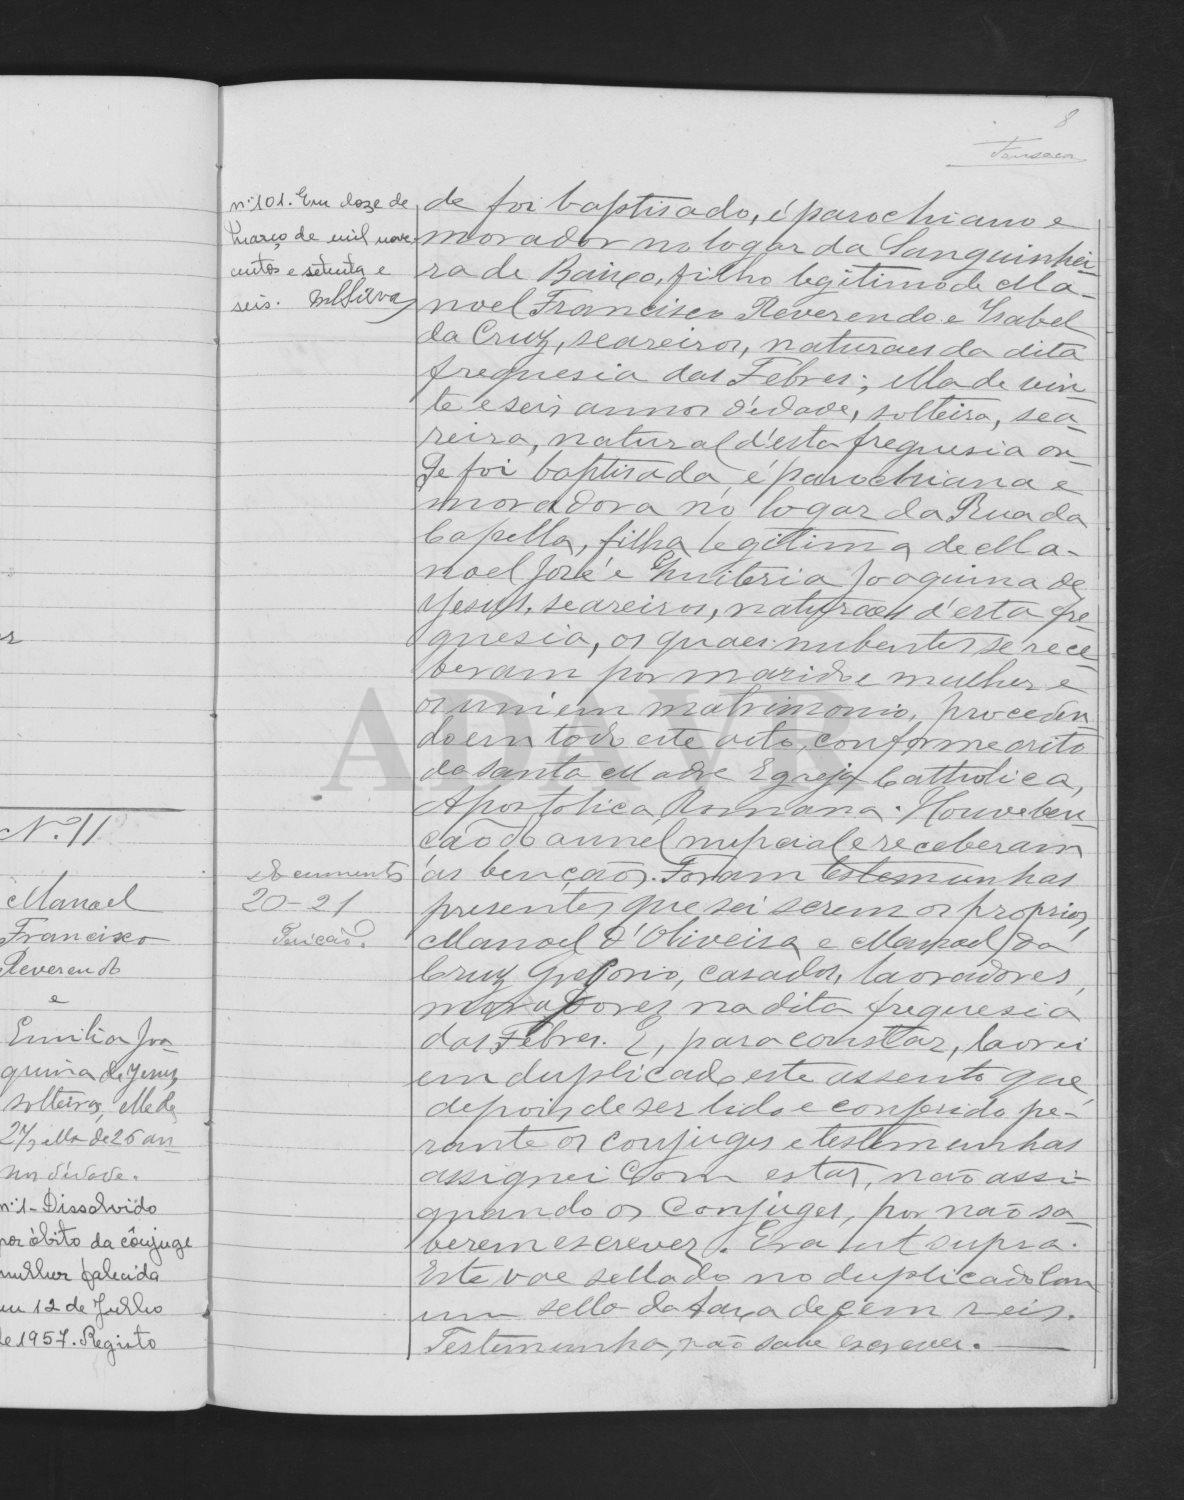 N.º 11
Manoel
Francisco
Reverendo
e
Emilia Joa-
quina de Jesus,
solteiros, elle de
27, ella de 26 an-
nos d'edade.
nº 1 - Dissolvido
por óbito da cônjuge
mulher falecida
em 12 de Julho
de 1957. Registo
8
Fonseca
nº 101. Em doze de
Março de mil nove-
centos e setenta e
seis. MSilva
Documentos
20-21
de foi baptisado, é parochiano e
morador no logar da Sanguinhei-
ra de Baixo, filho legitimo de Ma-
noel Francisco Reverendo e Isabel
da Cruz, seareiros, naturaes da dita
freguesia das Febres; ella de vin-
te e seis annos d'edade, solteira, sea-
reira, natural d'esta freguesia on-
de foi baptisada, é parochiana e
moradora no logar da Rua da
Capella, filha legitima de Ma-
noel José e Quiteria Joaquina de
Jesus, seareiros, naturaes d'esta fre-
guesia, os quaes nubentes se rece-
beram por marido e mulher e
os uni em matrimonio, proceden-
do em todo este acto, conforme o rito
da Santa Madre Egreja Catholica,
Apostolica Romana. Houve ben-
ção do annel nupcial e receberam
as benções. Foram testemunhas
presentes, que sei serem os proprios,
Manoel d'Oliveira e Manoel da
Cruz Gregorio, casados, lavradores,
moradores na dita freguesia
das Febres. E, para constar, lavrei
em duplicado este assento que,
depois de ser lido e conferido pe-
rante os conjuges e testemunhas
assignei com estas, não assi-
gnando os conjuges, por não sa-
berem escrever. Era ut supra.
Este vae sellado no duplicado com
um sello da taxa de cem reis.
Testemunha, não sabe escrever.
ADAVR